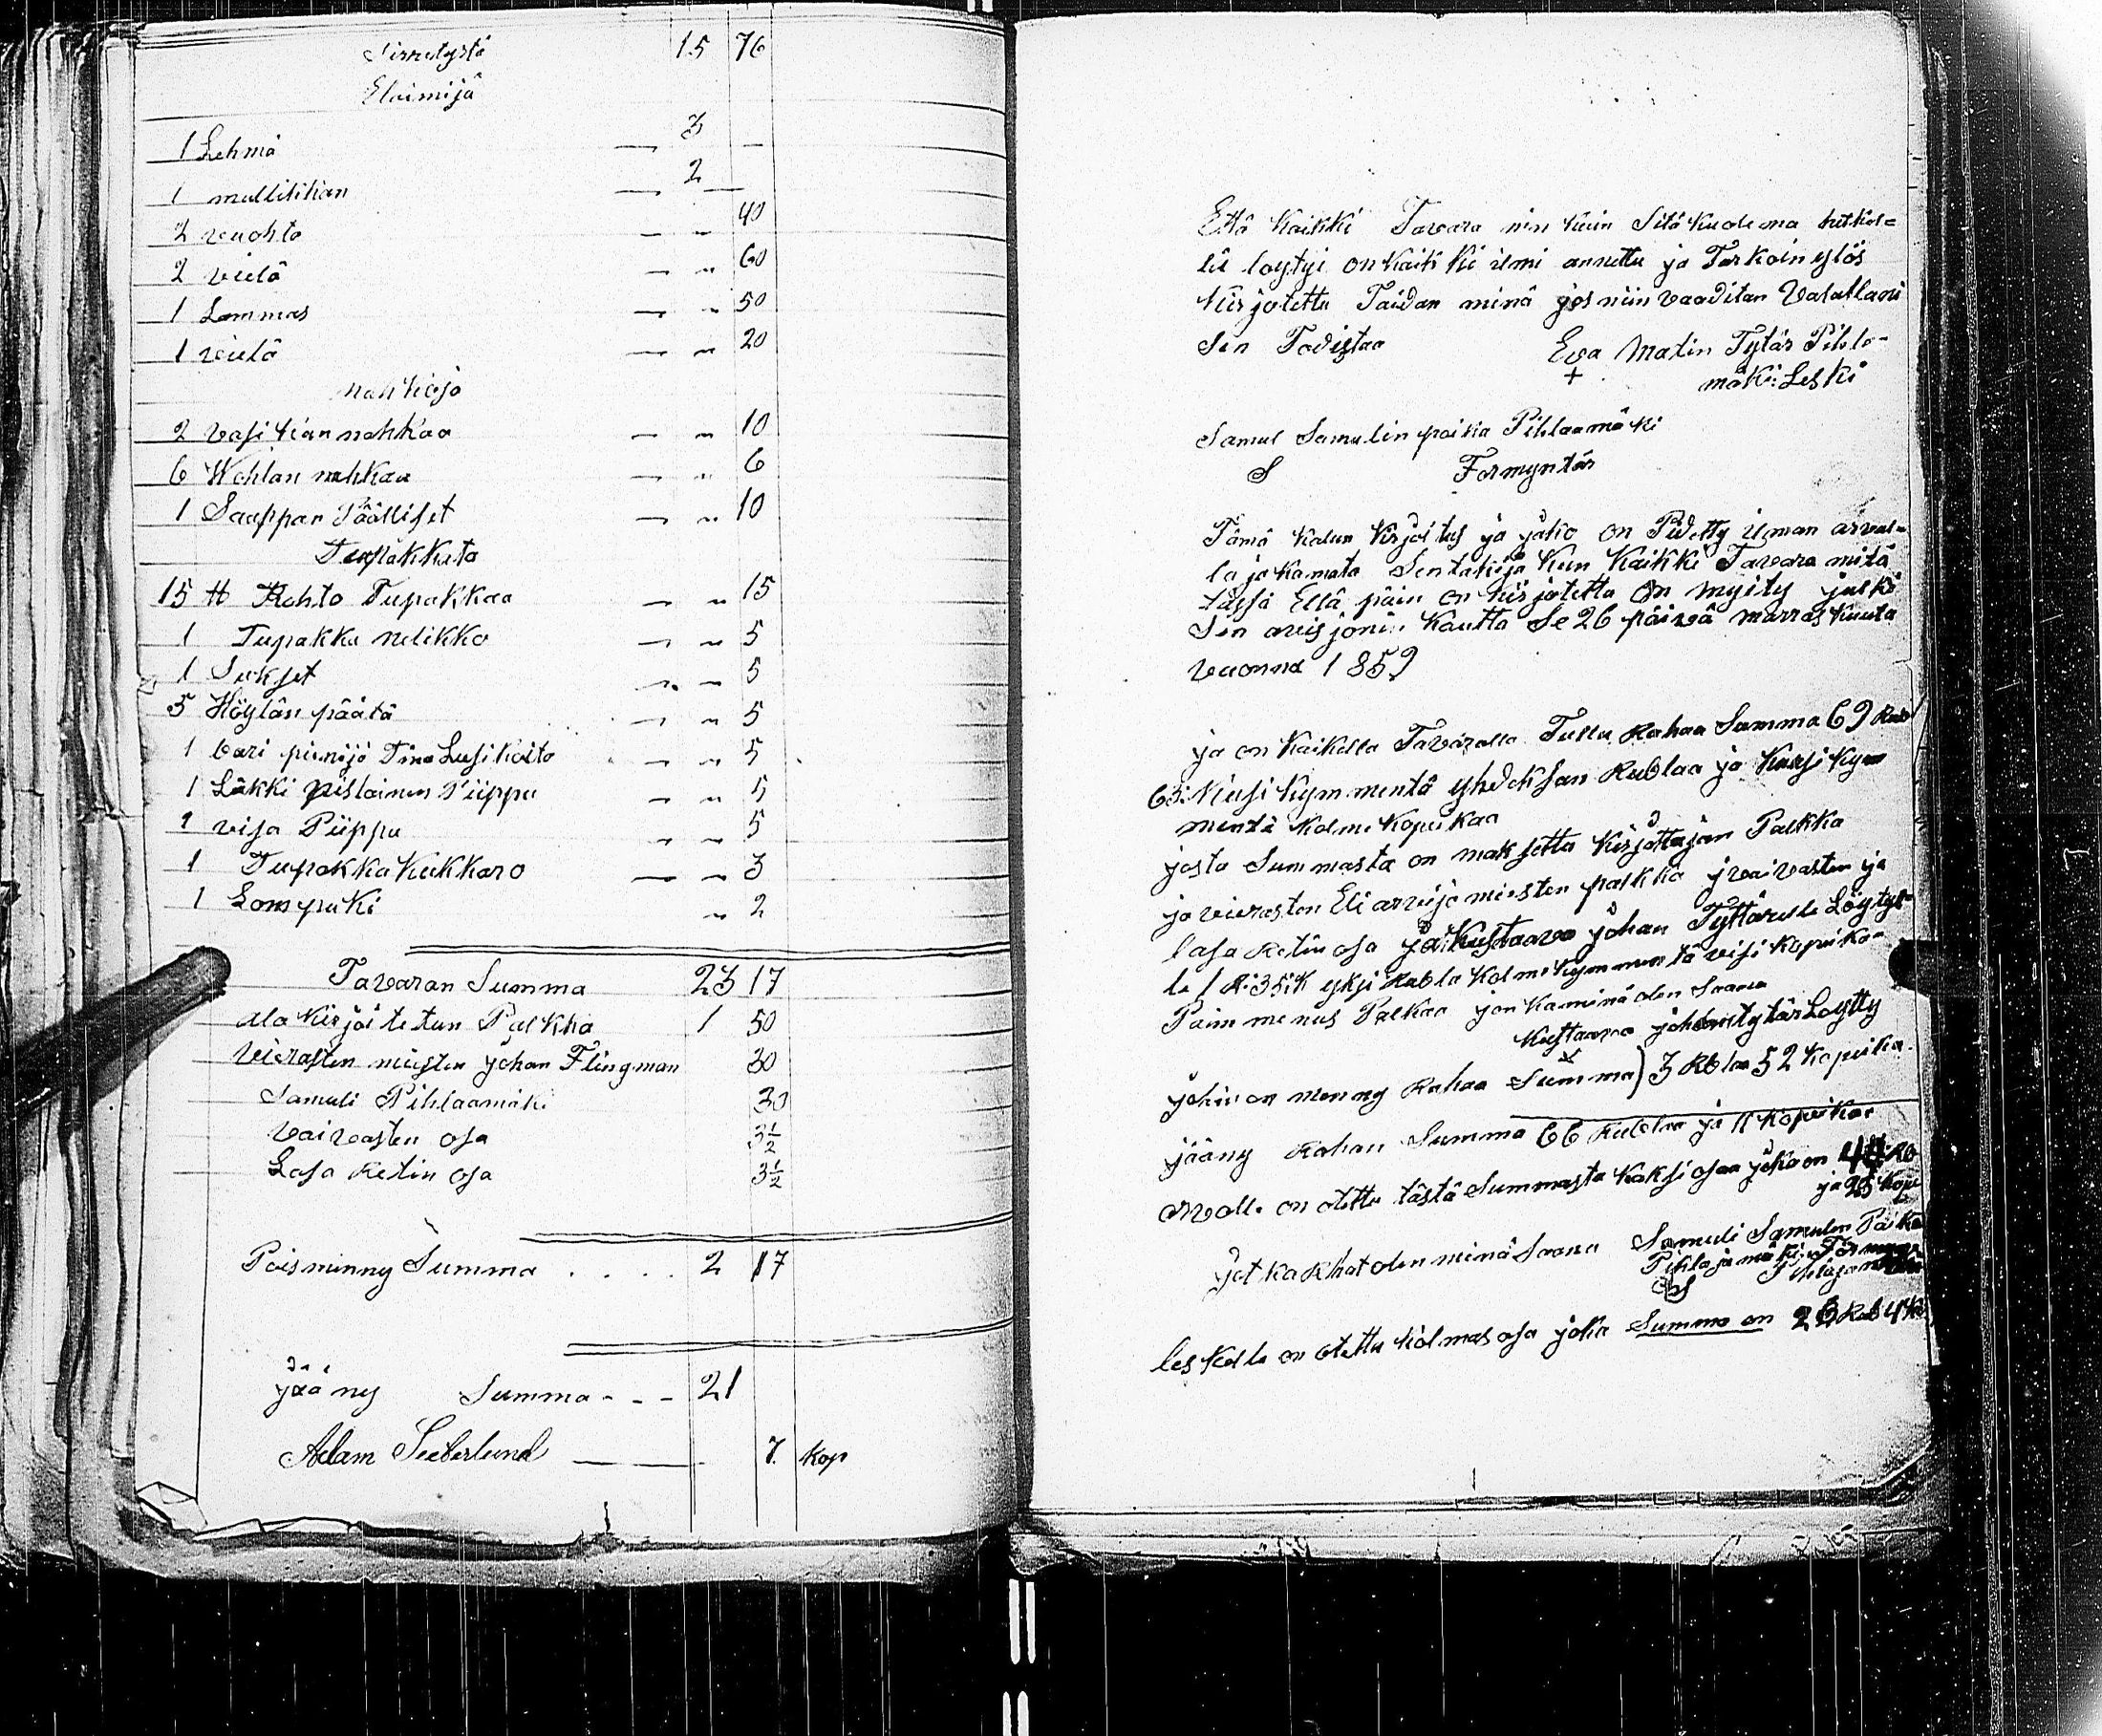 Sirretystä 15 76
Eläimijä
1 Lehmä — 3 —
1 mullikkan — 2 —
2 vuohta — „ 40
2 vielä — „ 60
1 Lammas — „ 50
1 vielä — „ 20
nahkoja
2 vasikan nahkaa — „ 10
6 Wohlan nahkaa — „ 6
1 Saappan Päälliset — „ 10
Tupakkata
15 ℔ Rohto Tupakkaa — „ 15
1 Tupakka nelikko — „ 5
1 Sukset — „ 5
5 Höylän päätä — „ 5
1 bari pienijä Tina Lusikoita — „ 5
1 Läkki pislainen Piippu — „ 5
1 visa Piippu — „ 5
1 Tupakka Kukkaro — „ 3
1 Lompuki „ 2
Tavaran Summa 23 17
ala Kirjoitetun Palkka 1 50
Vierasten miesten johan Flingman 30
Samuli Pihlaamäki 30
Vaivasten osa 3½
Lasa retin osa 3½
Poisminny Summa . . . . 2 17
jääny Summa - - - 21
Adam Seeberlund — 7. Kop
Että Kaikki Tavara nin kuin Sitä kuolema hetkel=
lä löytyi on kaikki ilmi annettu ja Tarkoin ylös
kirjotettu Taidan minä jos niin vaaditan Valallani
Sen Todistaa Eva Matin Tytär Pihla-
+ mäki: Leski
Samul Samulin poika Pihlaamäki
S Formyntär
Tämä kalun Kirjoitus ja jako on Pidetty ilman arval-
la jakamata Sentakija Kun Kaikki Tavara mitä
tässä Ellä päin on kirjotettu on myity julki
Sen auisjonin Kautta Se 26 päivä marras kuuta
vuonna 1859
ja on Kaikella Tavaralla Tullu Rahaa Summa 69 Rub
63: Kuusi kymmentä yhdeksan Rublaa ja Kuusi kym
mentä Kolme Kopeikaa
josta Summasta on maksettu Kirjottajan Palkka
ja vierasten Eli arvijo miesten palkka j vaivasten ja
lasa retin osa ja Kustaava johan Tyttärelle Löytyl-
le 1 R: 35: K yksi Rubla Kolme kymmentä viisi Kopeikaa
Paimmenus Palkaa jonka minä olen Saanu
Kustaava johantytär Löytty
johin on menny Rahaa Summa) 3 Rblaa 52 Kopeika.
jääny Rahan Summa 66 Rublaa ja 11 Kopeikaa
orvolle on otettu tästä Summasta Kaksi osaa joka on 44 Rb
ja 25 Kope
jotka Khat olen minä Saanu Samuli Samulin Poika
Pihlajamäki:
S
les kelle on otettu Kolmas osa joka Summa on